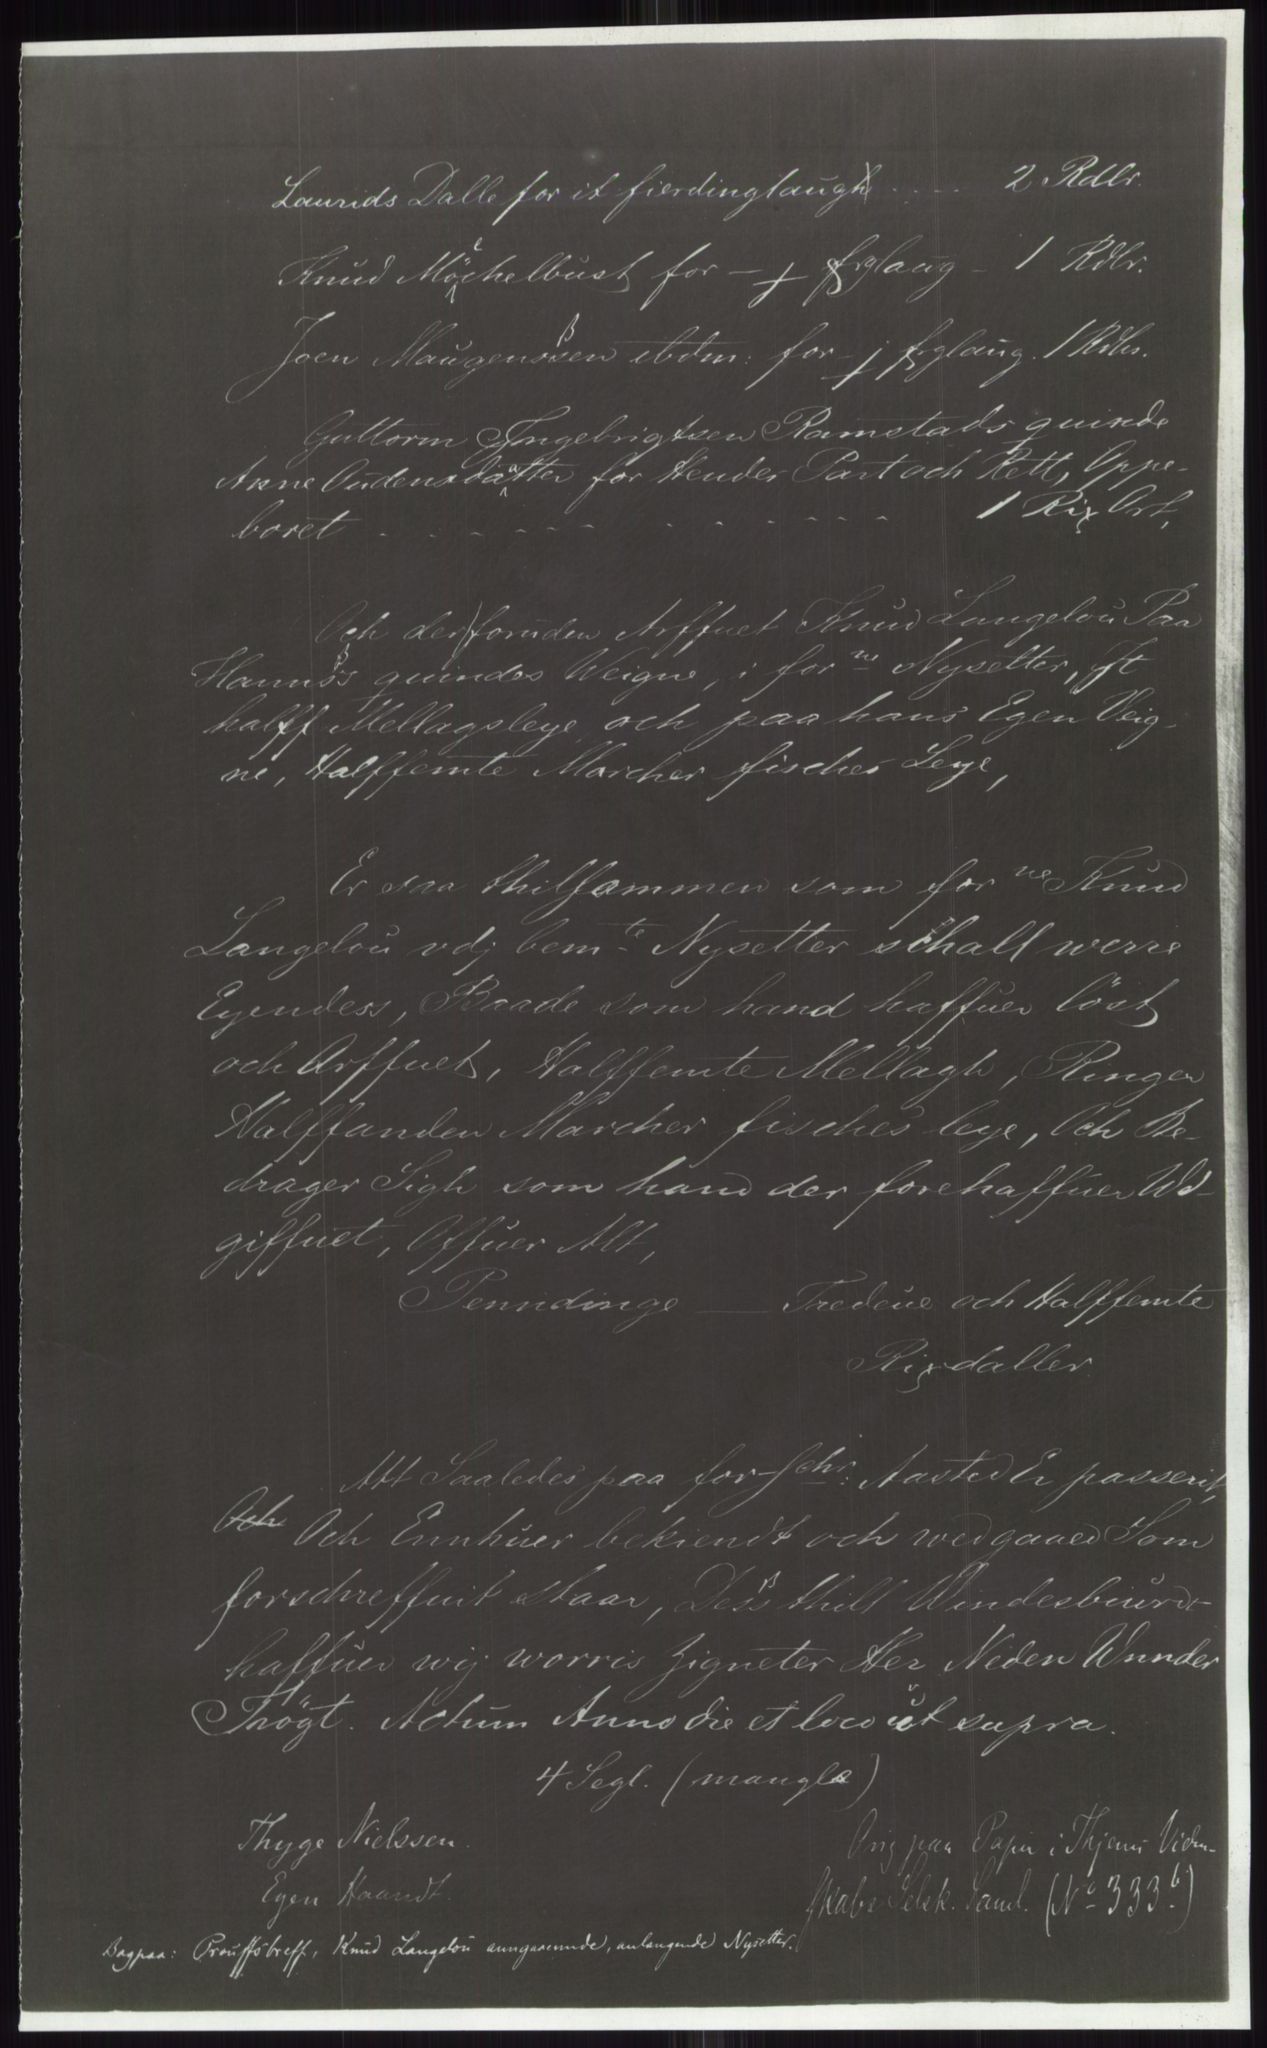 Laurids Dalle for it fierdinglaugh .... 2 Rdlr.
Knud Möchelbust for - ɉ frglaug - 1 Rdlr.
Joen Maugensen ibdm: for - ɉ frglaug. 1 Rdlr.
Guttorm Jngebrigtsen Ramstads quinde
Anne Oudensdatter for Hendes Part och Rett, Oppe-
boret . . . . . . . . . . . . 1 Rix Ort,
Och der foruden Arffuet Knud Langelou Paa
Hannss quindes Weigne, i for ne Nysetter, Jt
halff Mellagsleye och paa hans Egen Veig-
ne, Halffemte Marcher fisches Leye,
Er saa thilsammen som for ne Knud
Langelou vdj bem te Nysetter schall werre
Eyendess, Baade som hand haffuer löst
och Arffuet, Halffemte Mellagh, Ringer
Halffanden Marcher fisches leye, Och Be-
drager Sigh som hand der forehaffuer Wd-
giffuet, Offuer Alt,
Penndinge — Tredeue och Halffemte
Rixdaller.
Alt Saaledes paa for-schr: Aasted Er passerit,
Och Och Ennhuer bekiendt och wedgaaed Som
forschreffuit staar, Dess thill Windesbiurd
haffuer wij worris Zigneter Her Neden Wnnder
Trögt. Actum Anno die et loco ut supra.
4 Segl. (mangle)
Thyge Nielssen.
Egen Haandt.
Orig paa Papir i Thjems Viden-
skabs Selsk. Saml. (No 333 b.)
Bagpaa: Prouffsbreff, Knud Langelou anngaaennde, anlangende Nysetter.